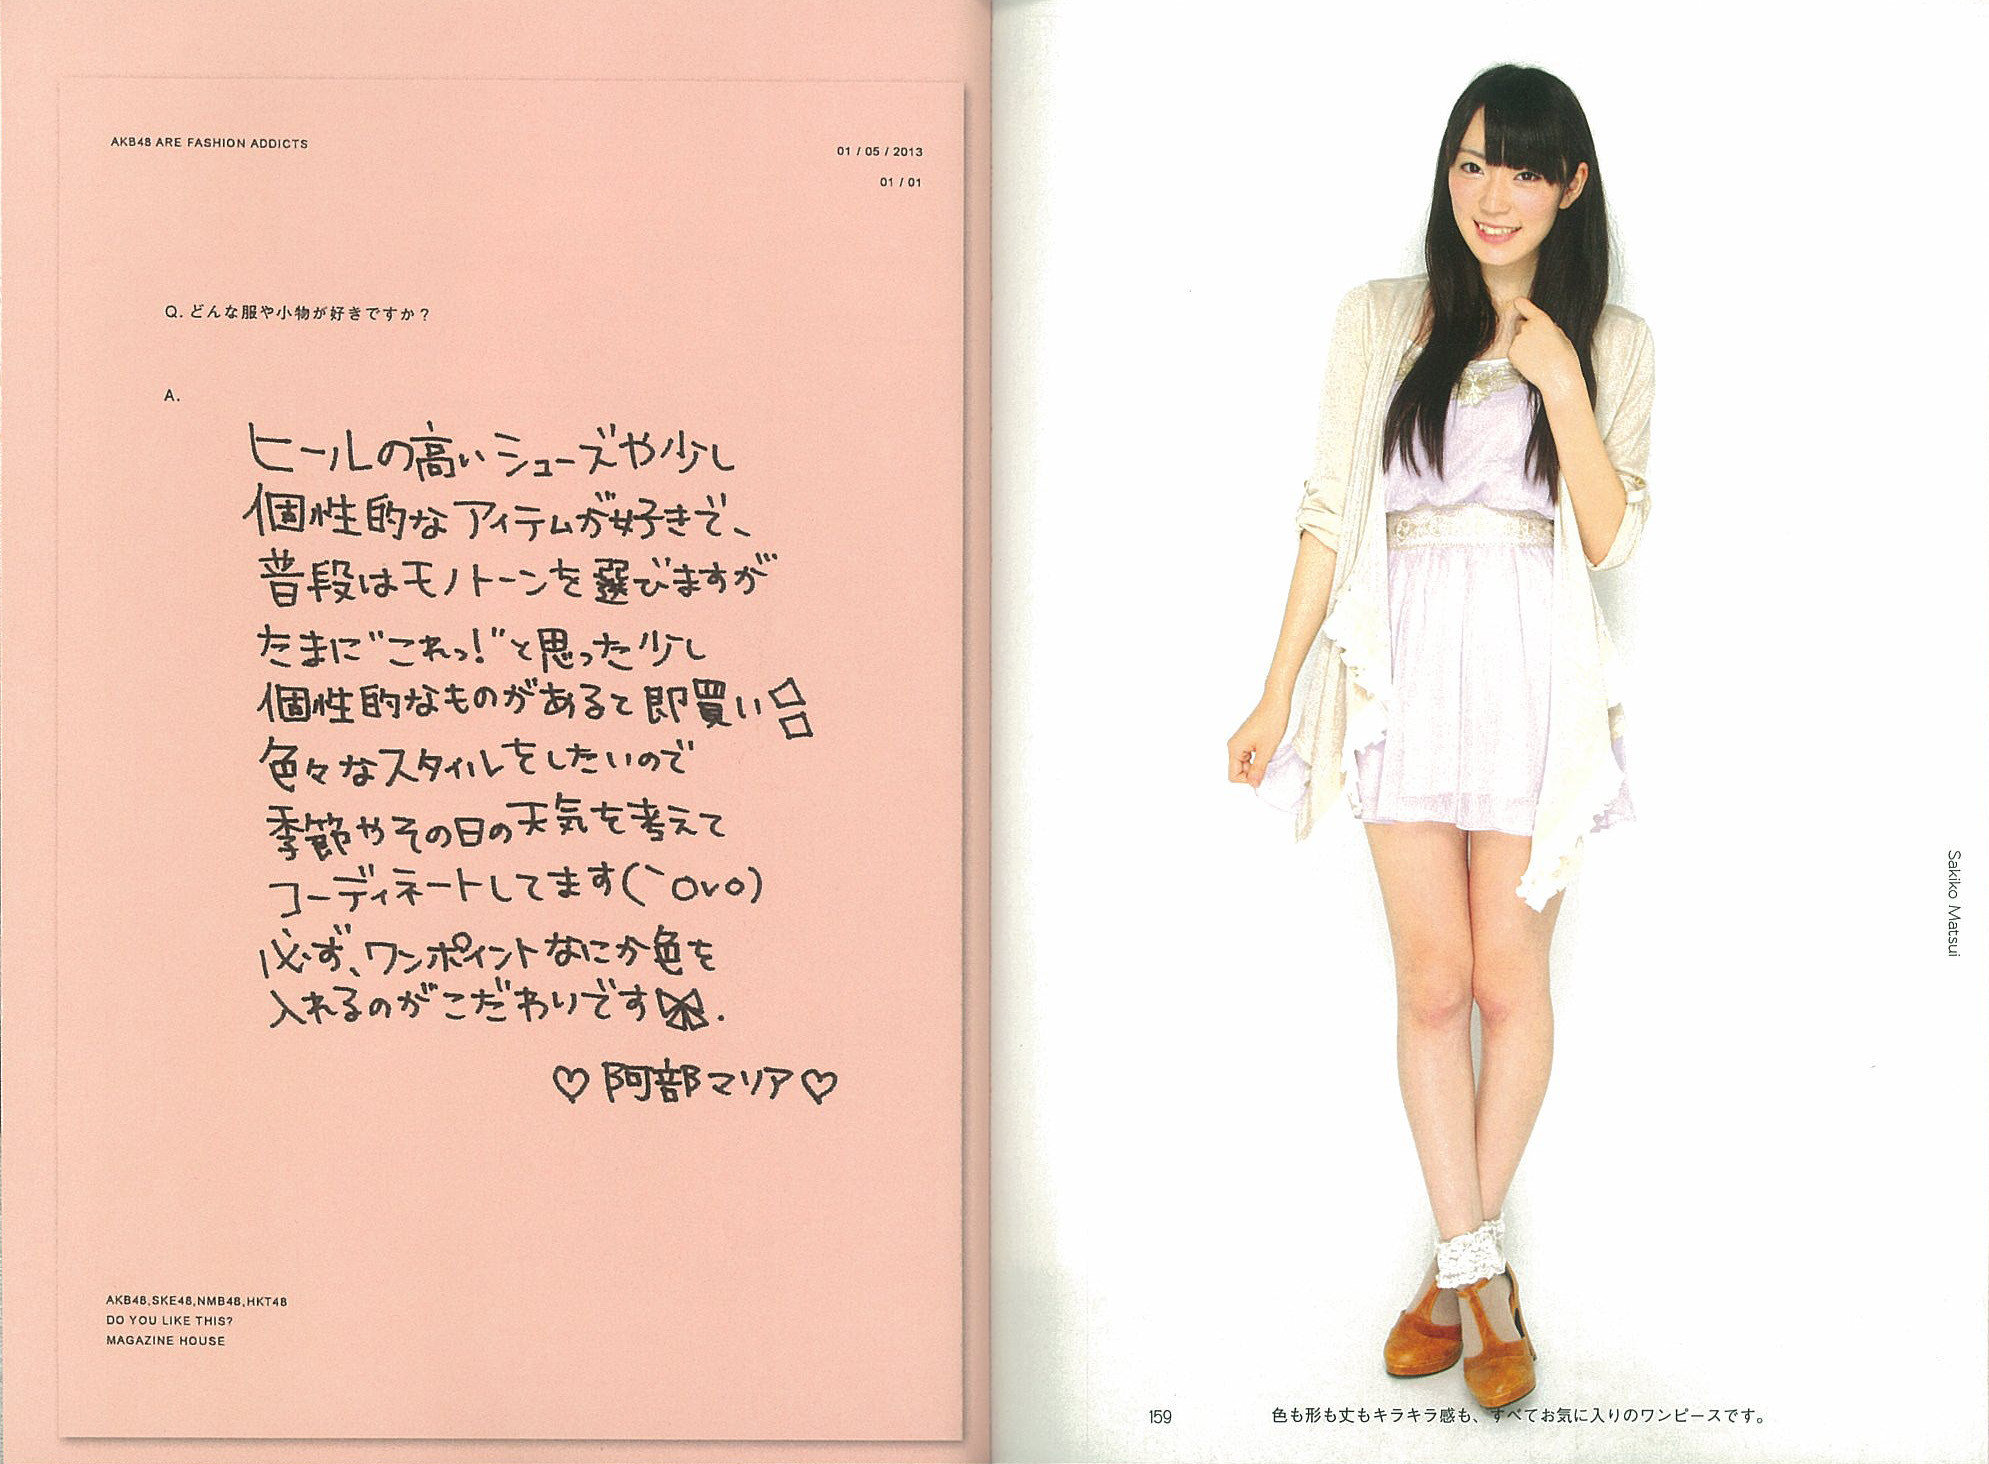 AKB48 ARE FASHION ADDICTS
01 / 05 / 2013
01 / 01
Q. どんな服や小物が好きですか？
A.
ヒールの高いシューズや少し
個性的なアイテムが好きで、
普段はモノトーンを選びますが
たまに"これっ!"と思った少し
個性的なものがあると即買い
色々なスタイルをしたいので
季節やその日の天気を考えて
コーディネートしてます(`OvO)
必ず、ワンポイントなにか色を
入れるのがこだわりです.
♡阿部マリア♡
AKB48,SKE48,NMB48,HKT48
DO YOU LIKE THIS?
MAGAZINE HOUSE
Sakiko Matsui
159
色も形も丈もキラキラ感も、すべてお気に入りのワンピースです。